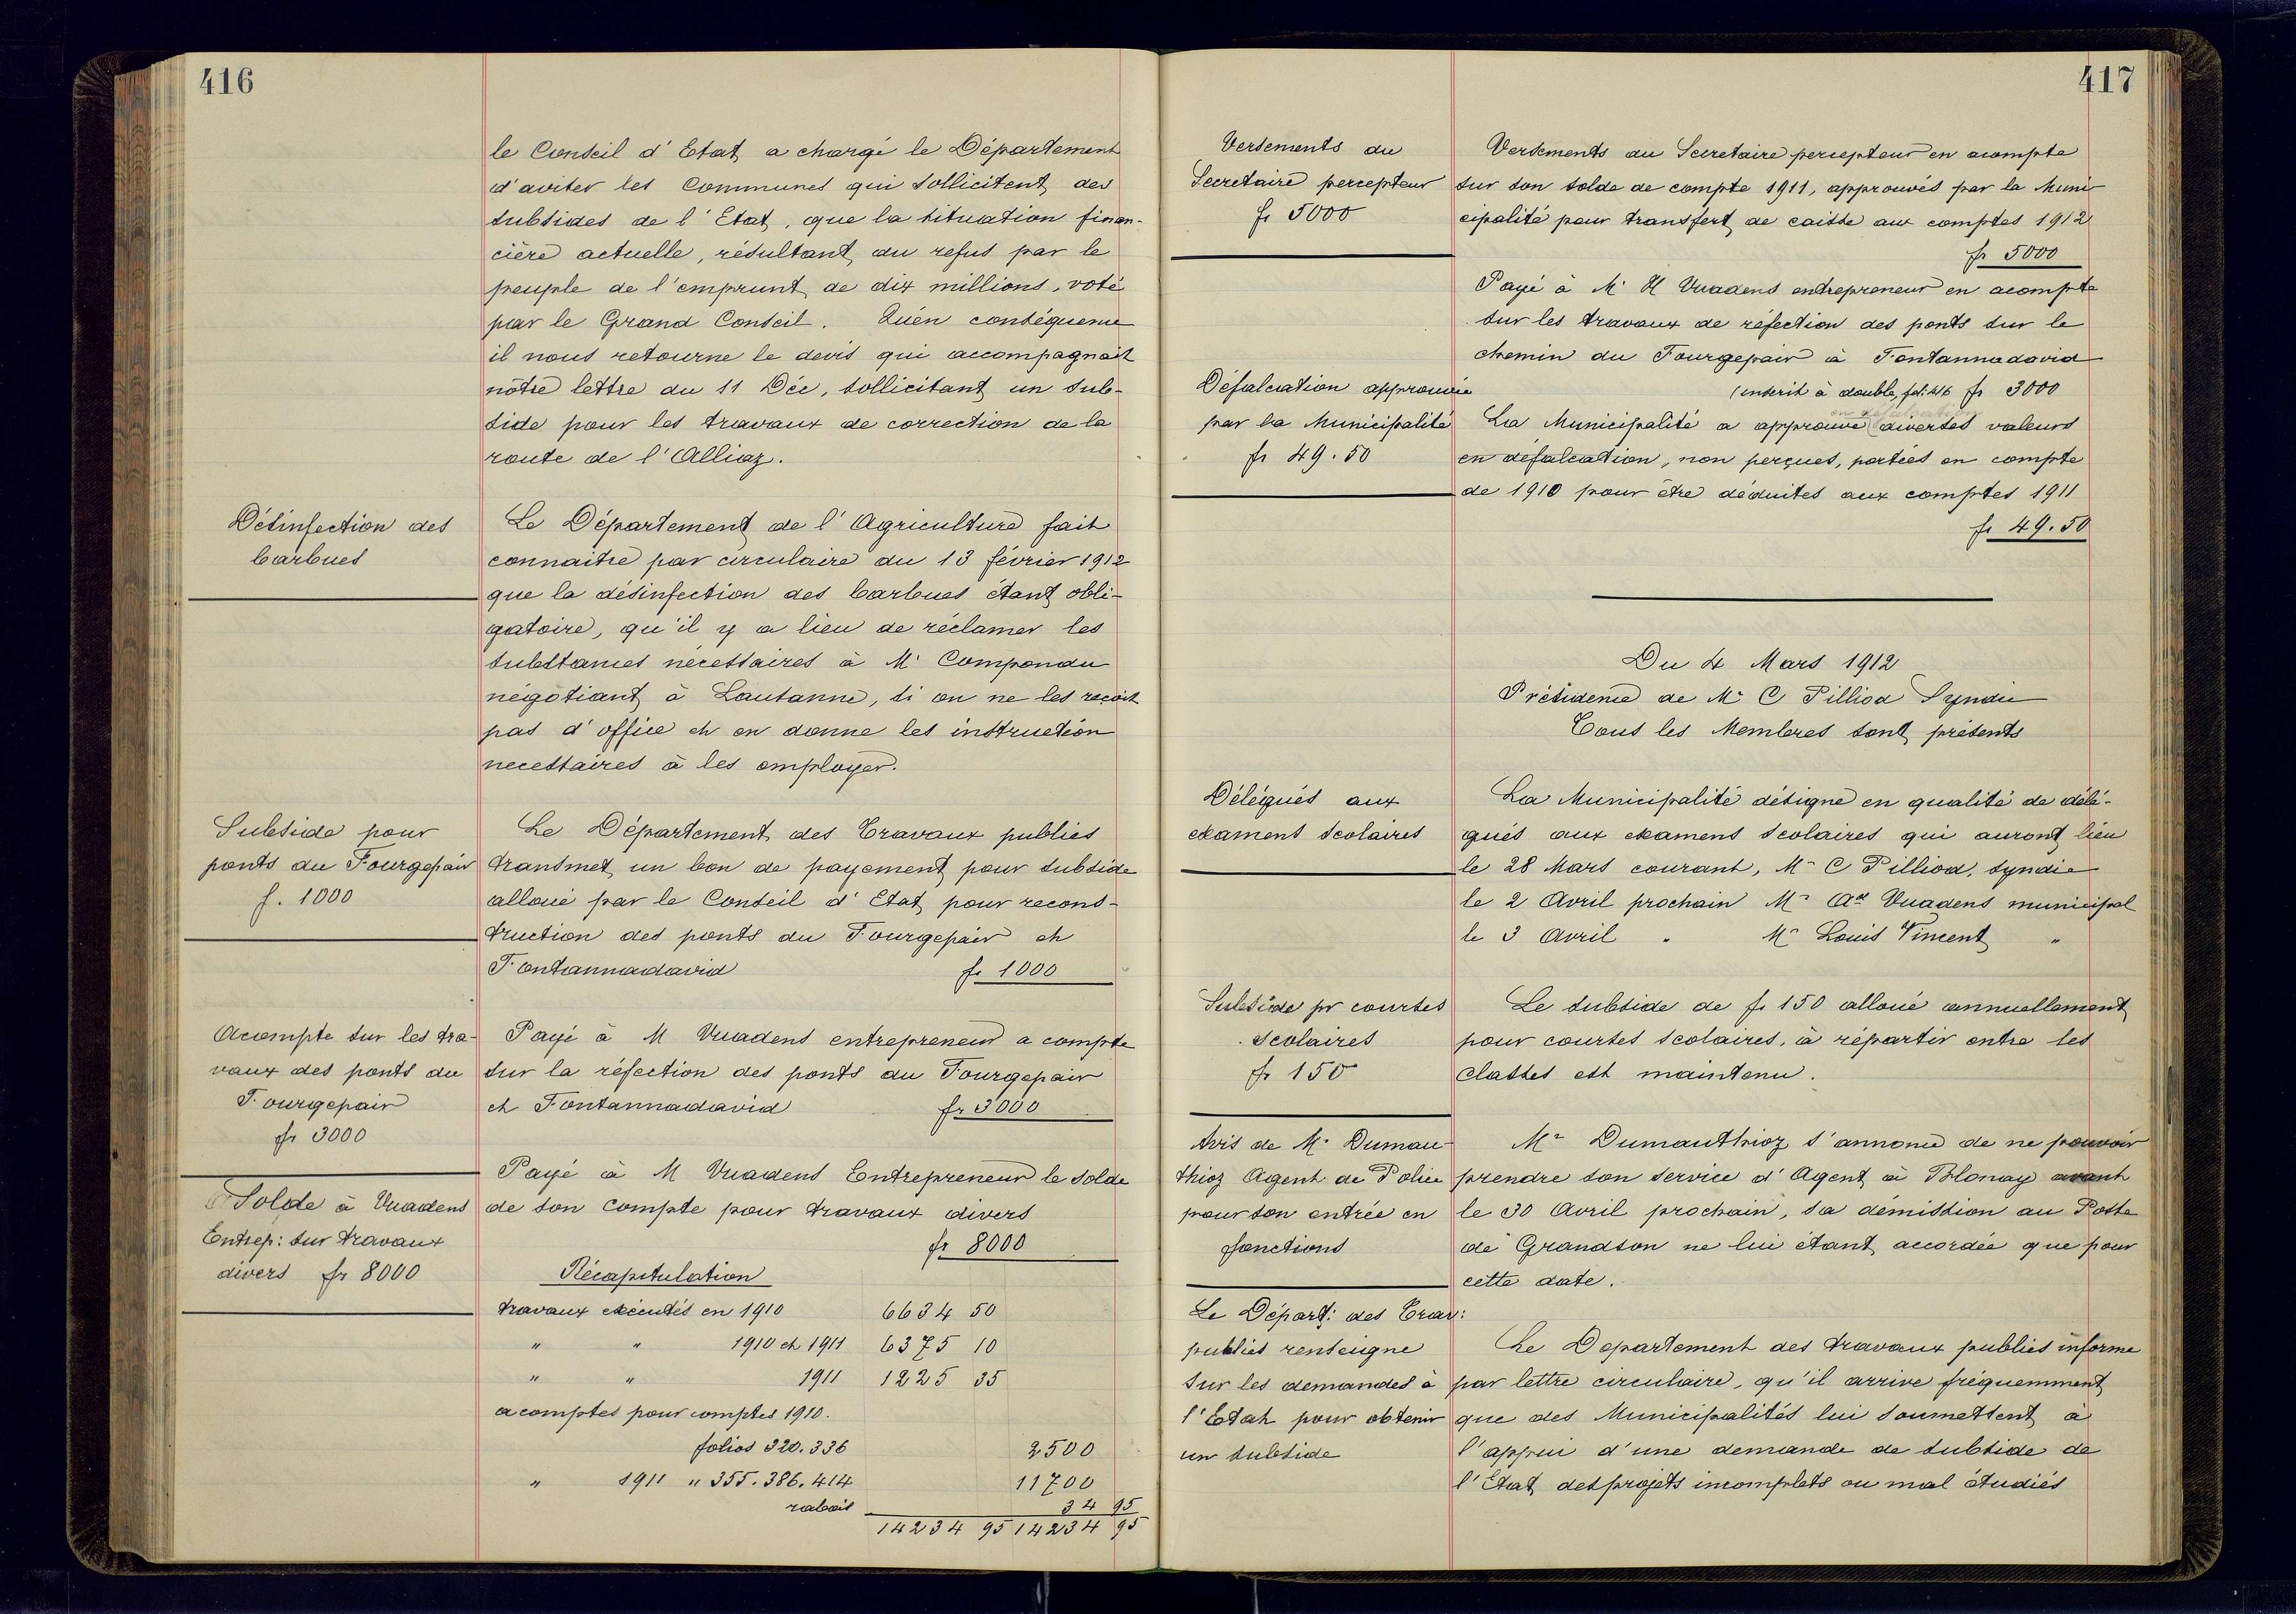 416
le Conseil d'Etat a chargé le Département
d'aviser les Communes qui sollicitent des
subsides de l'Etat, que la situation finan-
cière actuelle, résultant du refus par le
peuple de l'emprunt de dix millions, voté
par le Grand Conseil. Qu'en conséquence
il nous retourne le devis qui accompagnait
nôtre lettre du 11 Déc, sollicitant un sub-
side pour les travaux de correction de la
route de l'Alliaz.
Désinfection des
barbues
Le Département de l'Agriculture fait
connaitre par circulaire du 13 février 1912
que la désinfection des barbues étant obli-
gatoire, qu'il y a lieu de réclamer les
substances nécessaires à Mr Compondu
négotiant à Lausanne, si on ne les reçoit
pas d'office et en donne les instruction
necessaires à les employer.
Subside pour
ponts du Fourgepair
f. 1000
Le Département des Travaux publics
transmet un bon de payement pour subside
alloué par le Conseil d'Etat pour recons-
truction des ponts du Fourgepair et
Fontannadavid fr 1000
Acompte sur les tra-
vaux des ponts du
Fourgepair
fr 3000
Payé à M Vuadens entrepreneur a compte
sur la réfection des ponts du Fourgepair
et Fontannadavid fr 3000
Solde à Vuadens
Entrep: sur travaux
divers fr 8000
Payé à M Vuadens Entrepreneur le solde
de son compte pour travaux divers
fr 8000
Récapitulation
travaux exécutés en 1910 6634 50
" " 1910 et 1911 6375 10
" " 1911 1225 35
acomptes pour comptes 1910.
folios 320. 336 2500
" 1911 " 355. 386. 414 11700
rabais 34 95
14234 95 14234 95
417
Versements du
Secretaire percepteur
fr 5000
Versements du Secretaire percepteur en acompte
sur son solde de compte 1911, approuvés par la Muni-
cipalité pour transfert de caisse aux comptes 1912
fr 5000
Payé à Mr H Vuadens entrepreneur en acompte
sur les travaux de réfection des ponts sur le
chemin du Fourgepair à Fontannadavid
(inscrit à double, fol: 416 fr 3000
Défalcation approuvée
par la Municipalité
fr 49.50
La Municipalité a approuvé diverses valeurs
en défalcation, non perçues, portées en compte
de 1910 pour être déduites aux comptes 1911
fr 49.50
Du 4 Mars 1912
Présidence de Mr C Pilliod Syndic
Tous les Membres sont présents
Délégués aux
examens scolaires
La Municipalité désigne en qualité de délé-
gués aux examens scolaires qui auront lieu
le 28 Mars courant, Mr C Pilliod, syndic
le 2 Avril prochain Mr Ad Vuadens municipal
le 3 Avril " Mr Louis Vincent "
Subside pr courses
scolaires
fr 150
Le subside de fr 150 alloué annuellement
pour courses scolaires, à répartir entre les
classes est maintenu.
Avis de Mr Dumau-
thioz Agent de Police
pour son entrée en
fonctions
Mr Dumauthioz s'annonce de ne pouvoir
prendre son service d'Agent à Blonay avant
le 30 Avril prochain, sa démission au Poste
de Grandson ne lui étant accordée que pour
cette date.
Le Départ: des Trav:
publics renseigne
sur les demandes à
l'Etat pour obtenir
un subside
Le Departement des travaux publics informe
par lettre circulaire, qu'il arrive fréquemment
que des Municipalités lui soumettent à
l'appui d'une demande de subside de
l'Etat des projets incomplets ou mal étudiés